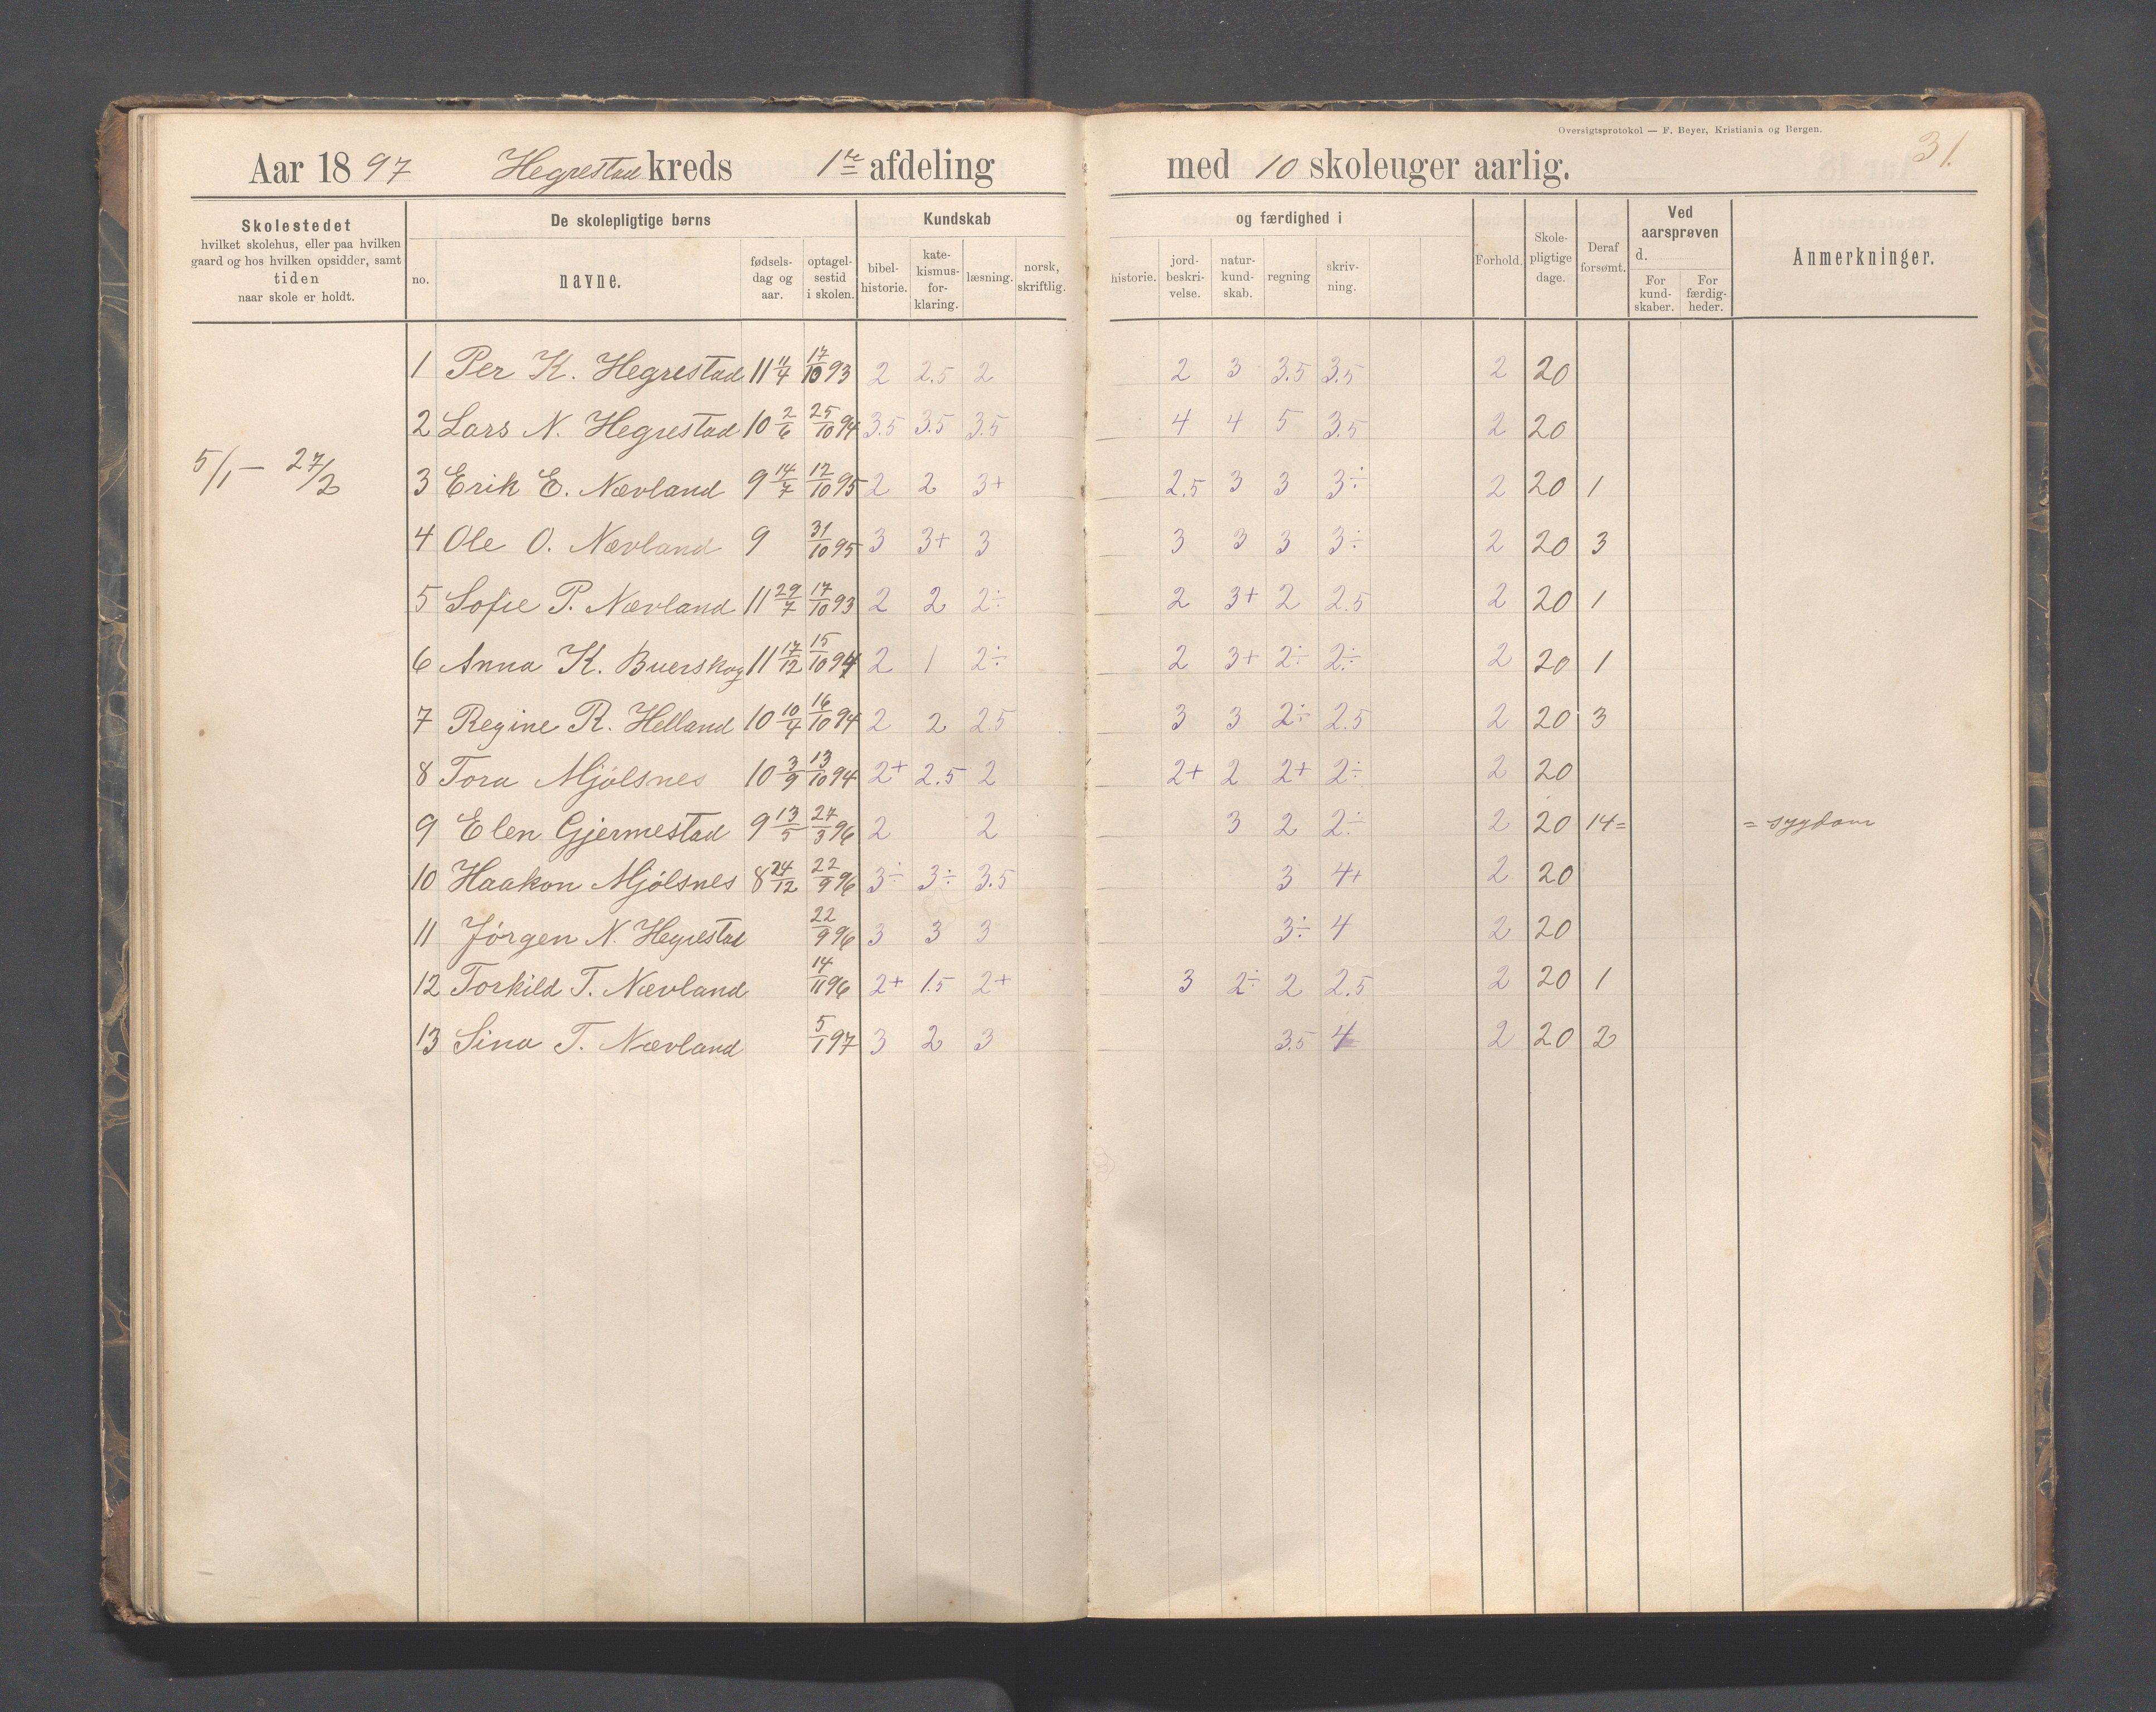 Oversigtsprotokol — F. Beyer, Kristiania og Bergen.
31.
Aar 1897 Hegrestad kreds 1ste afdeling med 10 skoleuger aarlig.
Skolestedet
hvilket skolehus, eller paa hvilken
gaard og hos hvilken opsidder, samt
tiden
naar skole er holdt.
De skolepligtige børns
no. navne. fødselsdag og aar. optagelsestid i skolen.
Kundskab og færdighed i
bibelhistorie. katekismusforklaring. læsning. norsk, skriftlig. historie. jordbeskrivelse. naturkundskab. regning skrivning.
Forhold. Skolepligtige dage. Deraf forsømt.
Ved aarsprøven d.
For kundskaber. For færdigheder.
Anmerkninger.
5/1 — 27/2
1 Per K. Hegrestad 11 11/4 17/10 93 2 2.5 2 2 3 3.5 3.5 2 20
2 Lars N. Hegrestad 10 2/6 25/10 94 3.5 3.5 3.5 4 4 5 3.5 2 20
3 Erik E. Nævland 9 14/7 12/10 95 2 2 3+ 2.5 3 3 3÷ 2 20 1
4 Ole O. Nævland 9 31/10 95 3 3+ 3 3 3 3 3÷ 2 20 3
5 Sofie P. Nævland 11 29/7 17/10 93 2 2 2÷ 2 3+ 2 2.5 2 20 1
6 Anna K. Buerskog 11 17/12 15/10 94 2 1 2÷ 2 3+ 2÷ 2÷ 2 20 1
7 Regine R. Helland 10 10/4 16/10 94 2 2 2.5 3 3 2÷ 2.5 2 20 3
8 Tora Mjølsnes 10 3/9 13/10 94 2+ 2.5 2 2+ 2 2+ 2÷ 2 20
9 Elen Gjermestad 9 13/5 27/3 96 2 2 3 2 2÷ 2 20 14= = sygdom
10 Haakon Mjølsnes 8 24/12 22/9 96 3÷ 3÷ 3.5 3 4+ 2 20
11 Jørgen N. Hegrestad 22/9 96 3 3 3 3÷ 4 2 20
12 Torkild T. Nævland 14/11 96 2+ 1.5 2+ 3 2÷ 2 2.5 2 20 1
13 Sina T. Nævland 5/1 97 3 2 3 3.5 4 2 20 2